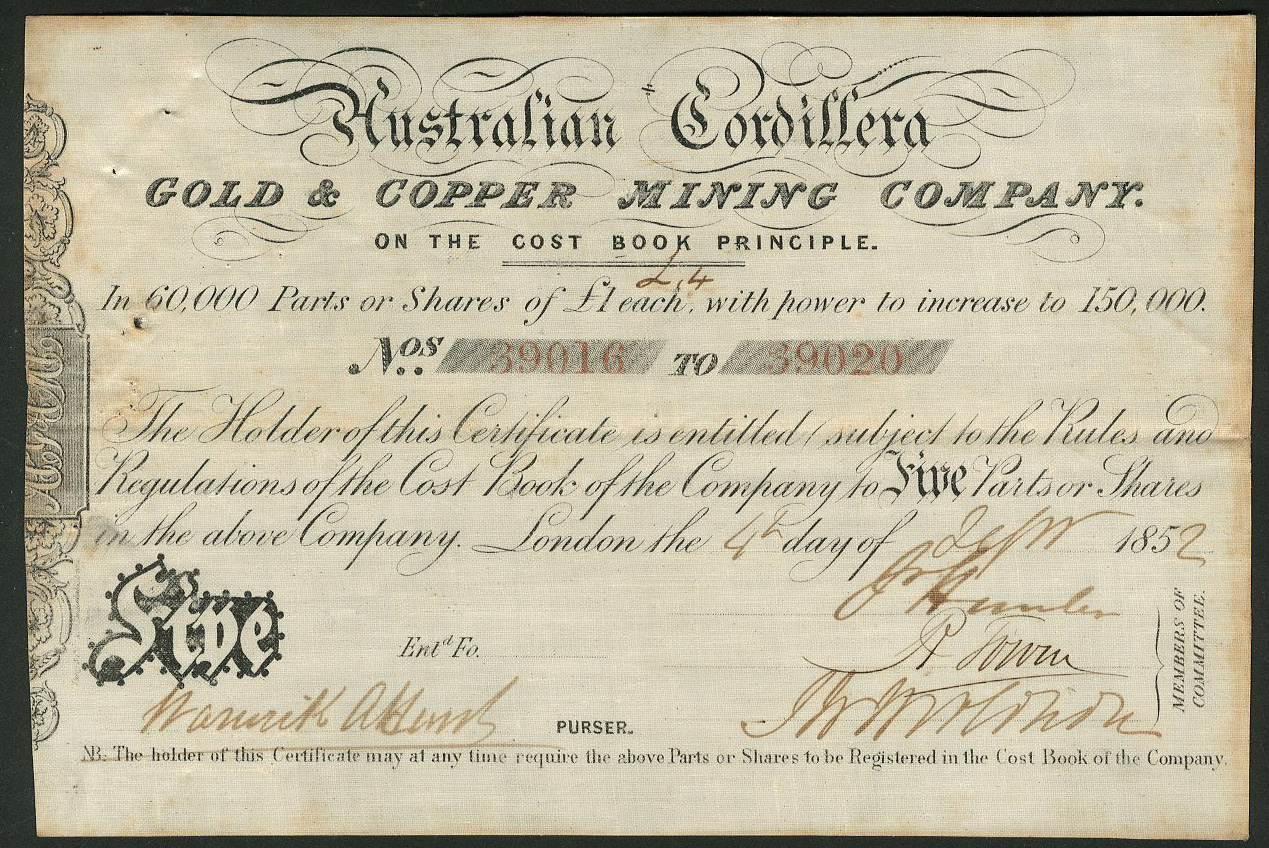 Australian Cordillera
GOLD & COPPER MINING COMPANY.
ON THE COST BOOK PRINCIPLE.
In 60,000 Parts or Shares of £1 each, with power to increase to 150,000.
Nos. 39016 TO 39020
The Holder of this Certificate is entitled (subject to the Rules and
Regulations of the Cost Book of the Company to Five Parts or Shares
in the above Company. London the 4th day of 1852
Five
Entd Fo.
R Towin
MEMBERS OF
COMMITTEE.
Warwick
PURSER.
NB: The holder of this Certificate may at any time require the above Parts or Shares to be Registered in the Cost Book of the Company.